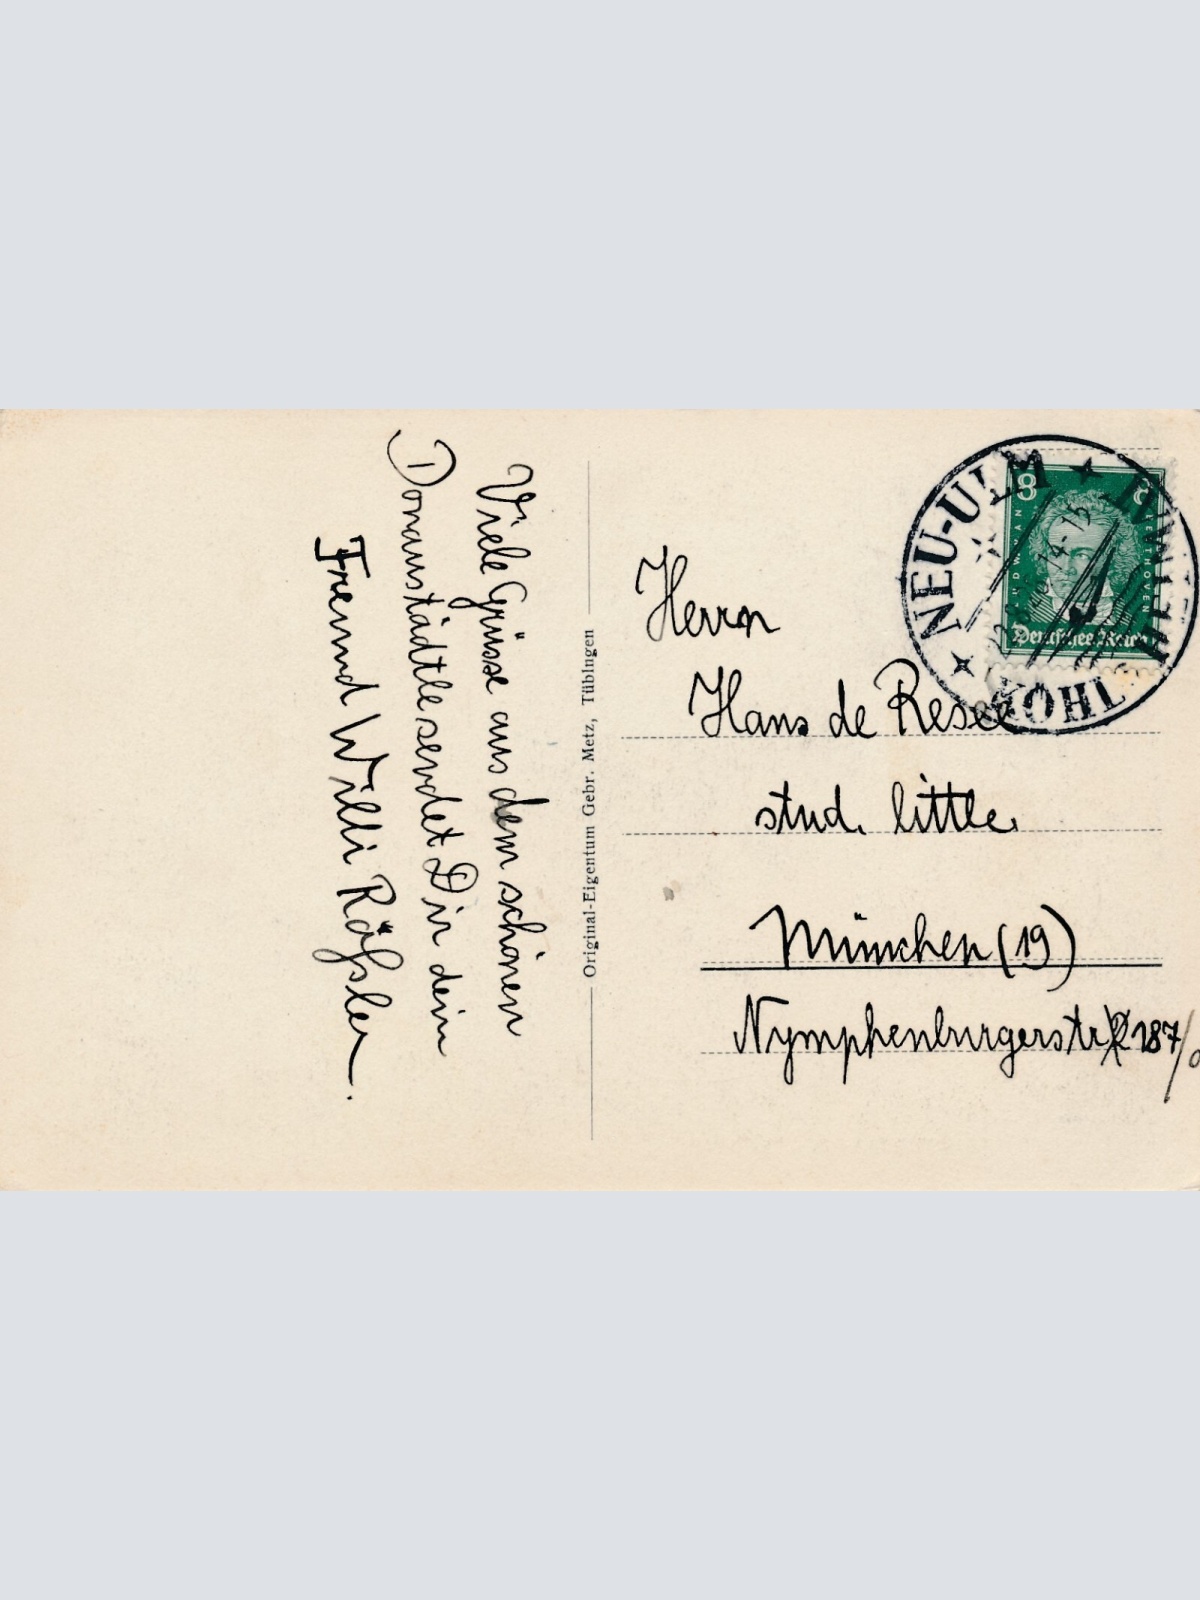 Viele Grüsse aus dem schönen
Donaustädtle sendet Dir dein
Freund Willi Räßler.
Original-Eigentum Gebr. Metz, Tübingen
Herrn
Hans de Resee
stud. little.
München (19)
Nymphenburgerstr 187/0
NEU-ULM
14-15
8
BEETHOVEN
Deutsches Reich